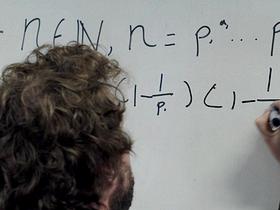 n ∈ ℕ, n = p₁^a₁ ... p
(1 - 1/p₁) (1 - 1